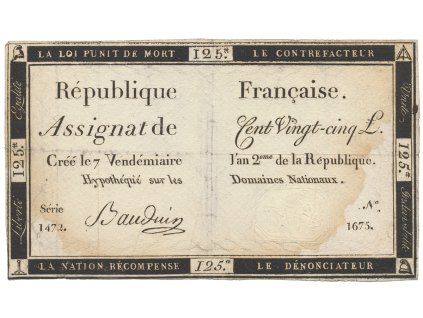 LA LOI PUNIT DE MORT 125.tt LE CONTREFACTEUR
Egalité
Unité
République Française.
Assignat de Cent Vingt-cinq L.
Créé le 7 Vendémiaire l'an 2eme de la République.
Hypothéqué sur les Domaines Nationaux.
Série No.
1472. Bauduin 1675.
Liberté
125.tt
Indivisibilité
125.tt
LA NATION RÉCOMPENSE 125.tt LE DÉNONCIATEUR